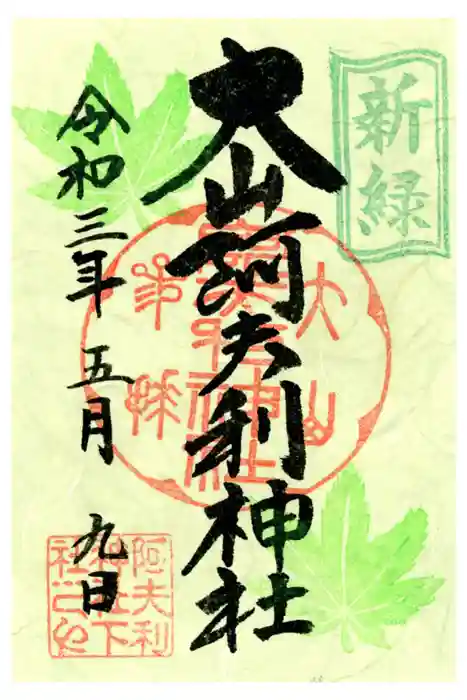 新緑
大山阿夫利神社
令和三年 五月 九日
阿夫利
神社下
社